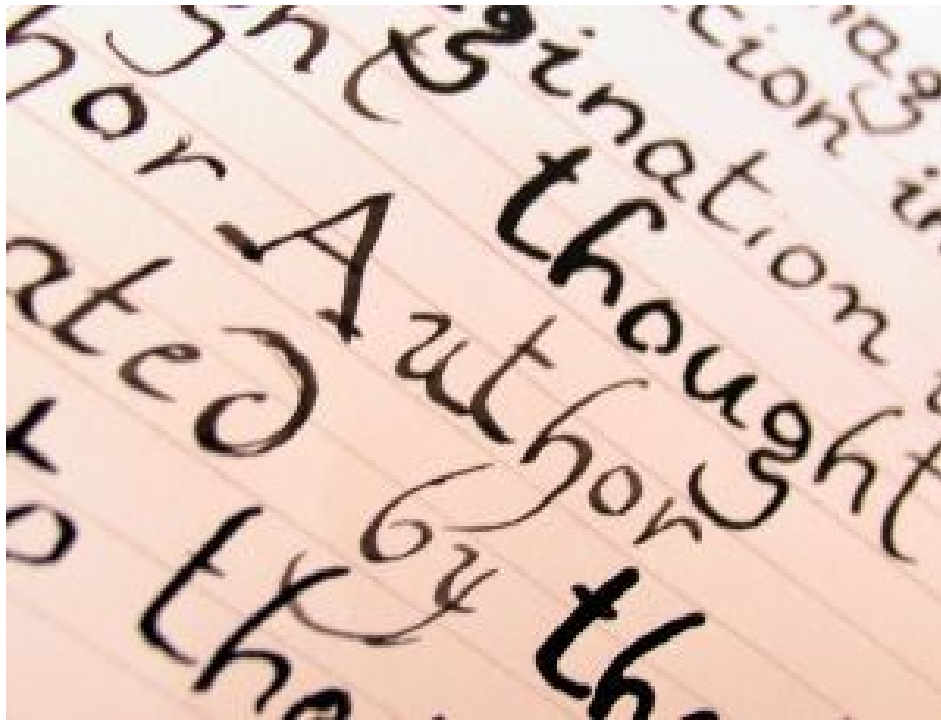 nag
tion in
gination
ght thought
hor Author
ated by th
tho